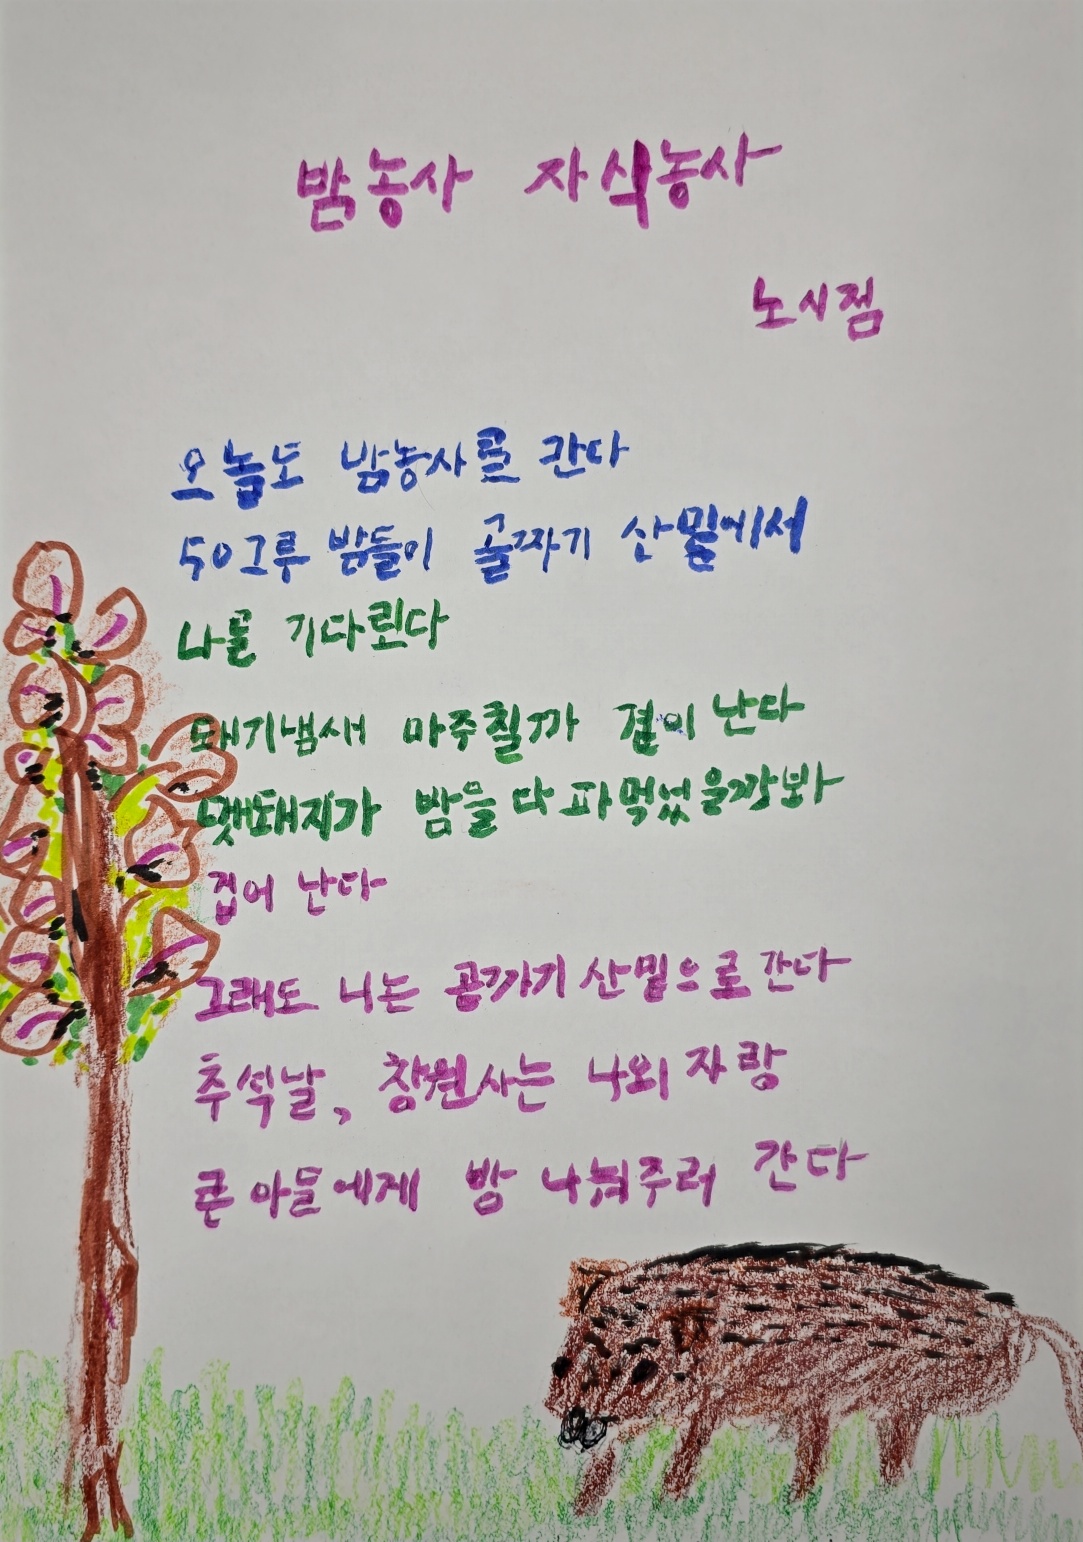 밤농사 자식농사
노시점
오늘도 밤농사를 간다
50그루 밤들이 골짜기 산밑에서
나를 기다린다
돼기냄새 마주칠까 겁이 난다
멧돼지가 밤을 다 파먹었을깡봐
겁어 난다
그래도 나는 골까기 산밑으로 간다
추석날, 창원사는 나의 자랑
큰 아들에게 밤 나눠주러 간다